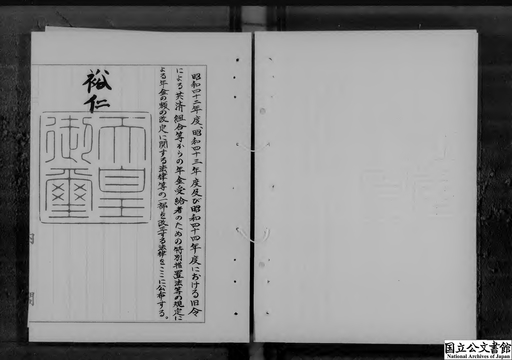 昭和四十二年度、昭和四十三年度及び昭和四十四年度における旧令
による共済組合等からの年金受給者のための特別措置法等の規定に
よる年金の額の改定に関する法律等の一部を改正する法律をここに公布する。
裕仁
天皇
御璽
国立公文書館
National Archives of Japan